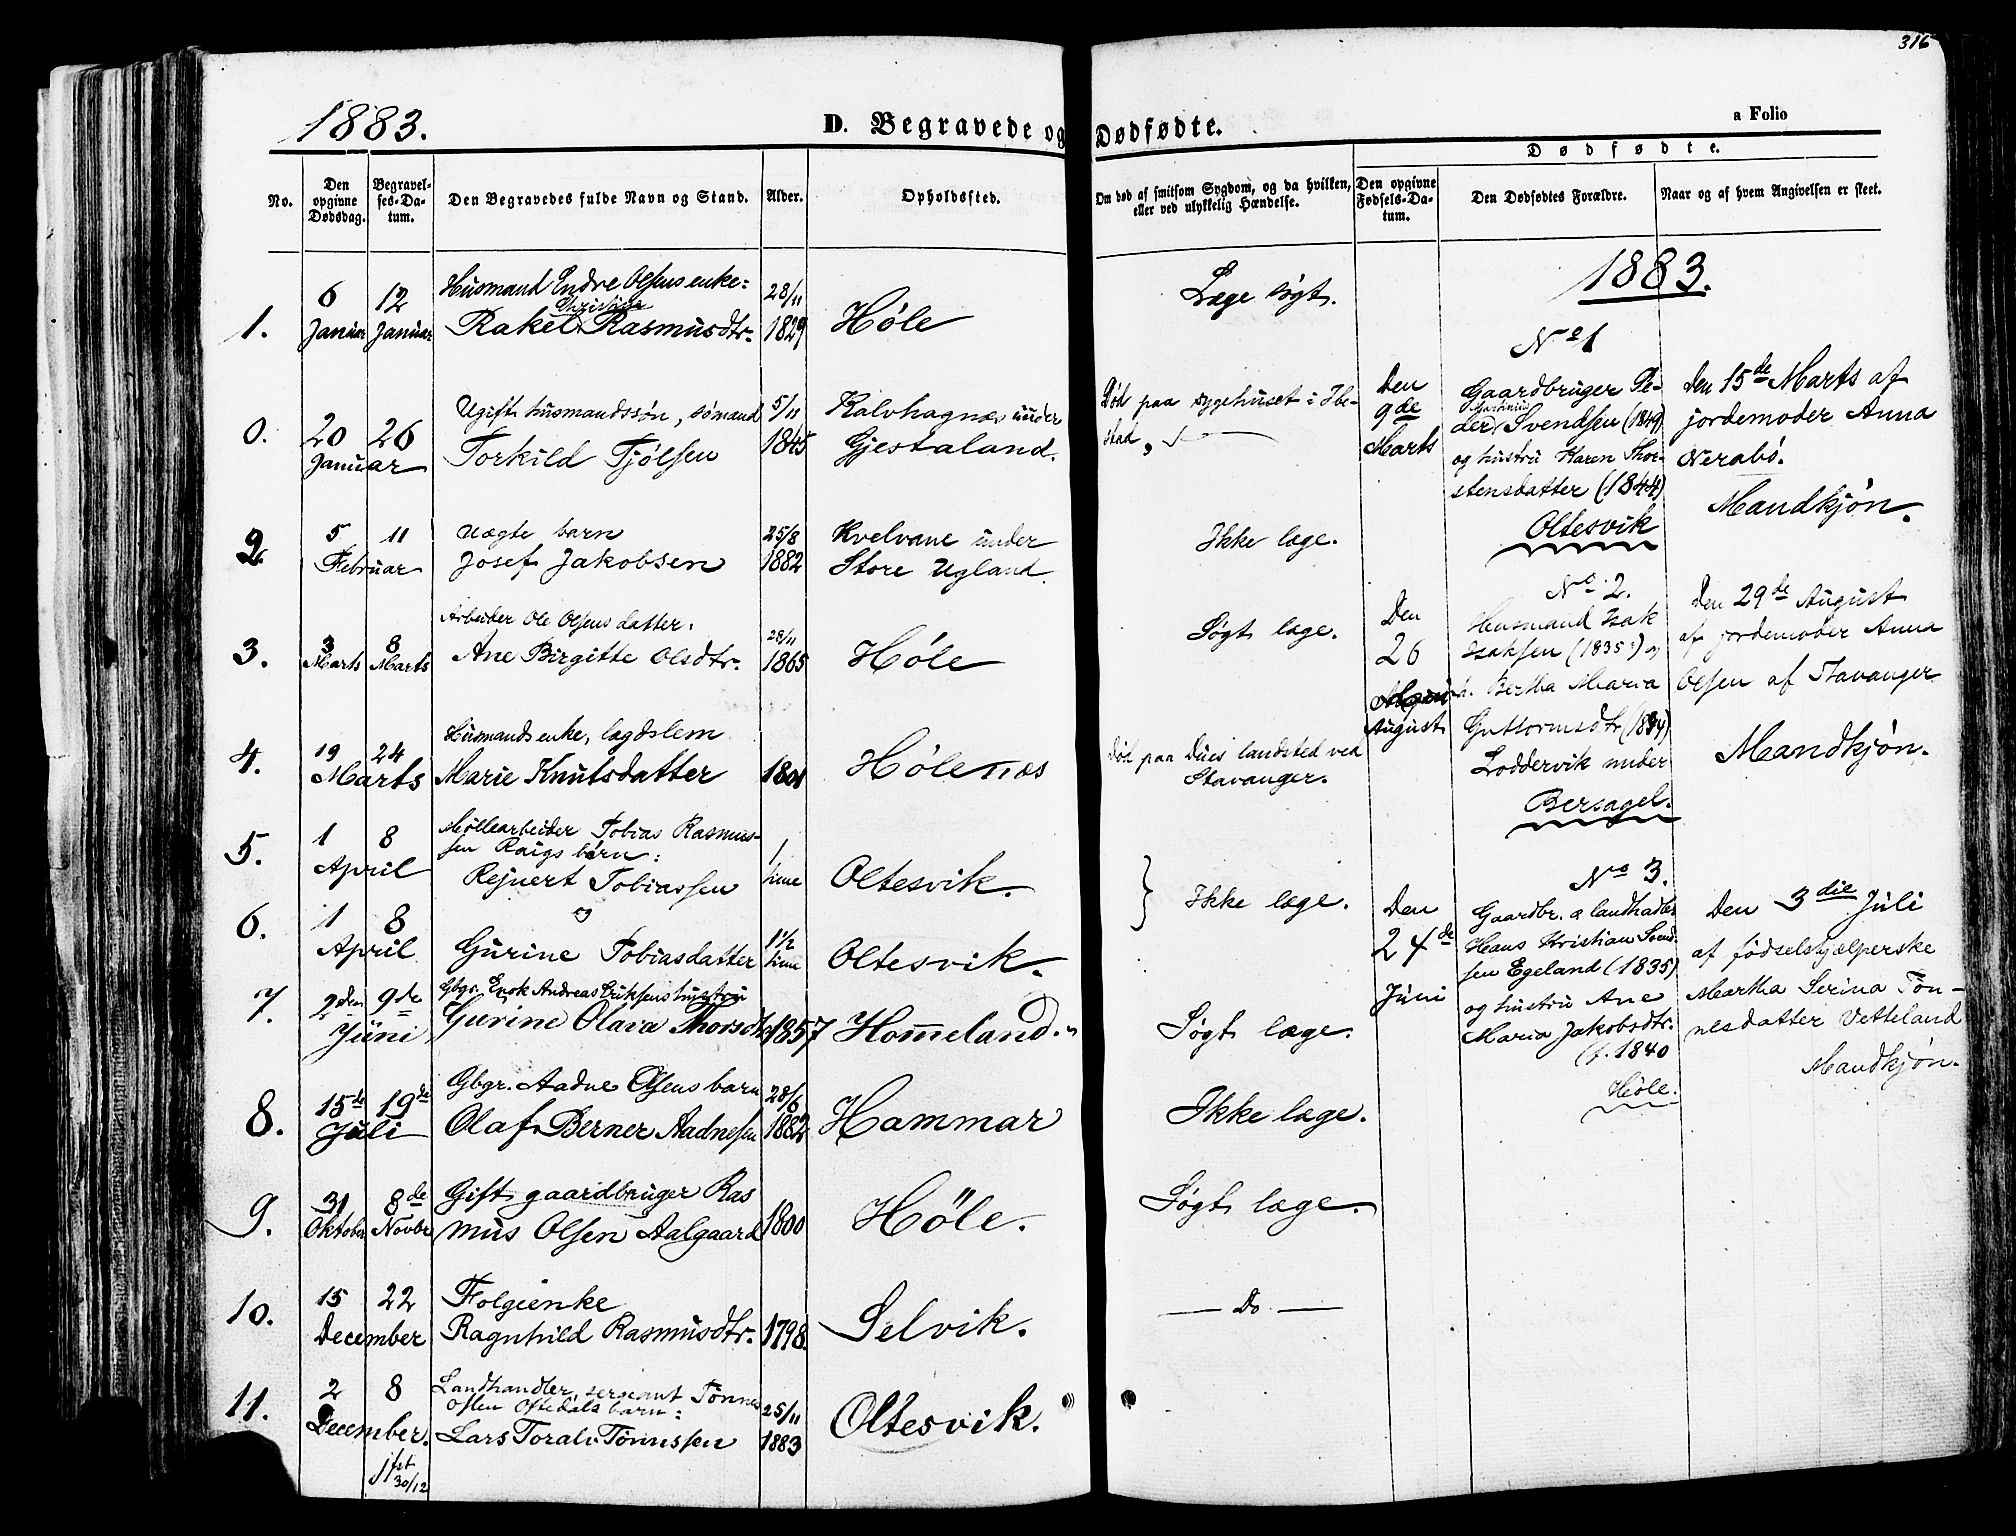 316
1883.
D. Begravede og Dødfødte.
a Folio
Dødfødte.
No.
Den opgivne Dødsdag.
Begravelses-Datum.
Den Begravedes fulde Navn og Stand.
Alder.
Opholdssted.
Om død af smitsom Sygdom, og da hvilken, eller ved ulykkelig Hændelse.
Den opgivne Fødsels-Datum.
Den Dødfødtes Forældre.
Naar og af hvem Angivelsen er skeet.
1.
6 Januar
12 Januar
Husmand Endre Olsens enke:
Rakel Rasmusdtr.
28/11 1829
Høle
Læge søgt.
0.
20 26
Januar
Ugift husmandssøn, sømand
Torkild Tjølsen
5/11 1845
Kalvhagnæs under
Gjestaland.
Død paa sygehuset i Ibe-
stad,
2.
5 11
Februar
Uægte barn
Josef Jakobsen
25/8 1882
Kvelvane under
Store Ugland.
Ikke læge.
3.
3 Marts
8 Marts
Arbeider Ole Olsens datter:
Ane Birgitte Olsdtr.
28/11 1865
Høle
Søgt læge.
4.
19 24
Marts
Husmandsenke, lægdslem
Marie Knutsdatter
1801
Hølenæs
Død paa Dues landsted ved
Stavanger.
5.
1 8
April
Møllearbeider Tobias Rasmus-
sen Raigs børn:
Rejnert Tobiassen
1 time
Oltesvik.
Ikke læge.
og
6.
1 8
April
Gurine Tobiasdatter
1½ time
Oltesvik.
7.
2den 9de
Juni
Gbgr. Enok Andreas Eriksens hustru
Gurine Olava Thorsdtr.
1857
Homeland.
Søgt læge.
8.
15de 19de
Juli
Gbgr. Aadne Olsens barn
Olaf Berner Aadnesen
28/6 1882
Hammar
Ikke læge.
9.
31 Oktober
8de Novbr
Gift gaardbruger Ras
mus Olsen Aalgaard
1800
Høle.
Søgt læge.
10.
15 22
December
Folgienke
Ragnhild Rasmusdtr.
1798.
Selvik.
— Do —
11.
2 8
December.
30/12
Landhandler, sergeant Tønnes
Olsen Oftedals barn:
Lars Toralv Tønnessen
25/11 1883
Oltesvik.
1883.
No 1
Den
9de
Marts
Gaardbruger Pe-
der Svendsen (1849)
og hustru Karen Thor-
stensdatter (1844)
Oltesvik
Den 15de Marts af
jordemoder Anna
Nerabø.
Mandkjøn.
No 2.
Den
26
August
Husmand Isak
Isaksen (1835) og
h. Bertha Maria
Guttormsdtr (1834)
Loddervik under
Bersagel.
Den 29de August
af jordemoder Anna
Olsen af Stavanger
Mandkjøn.
No 3.
Den
24de
Juni
Gaardbr. & landhadler
Hans Kristian Svend-
sen Egeland (1835)
og hustru Ane
Maria Jakobsdtr.
(f. 1840
Høle.
Den 3die Juli
af fødselshjælperske
Martha Serina Tøn-
nesdatter Vetteland
Mandkjøn.